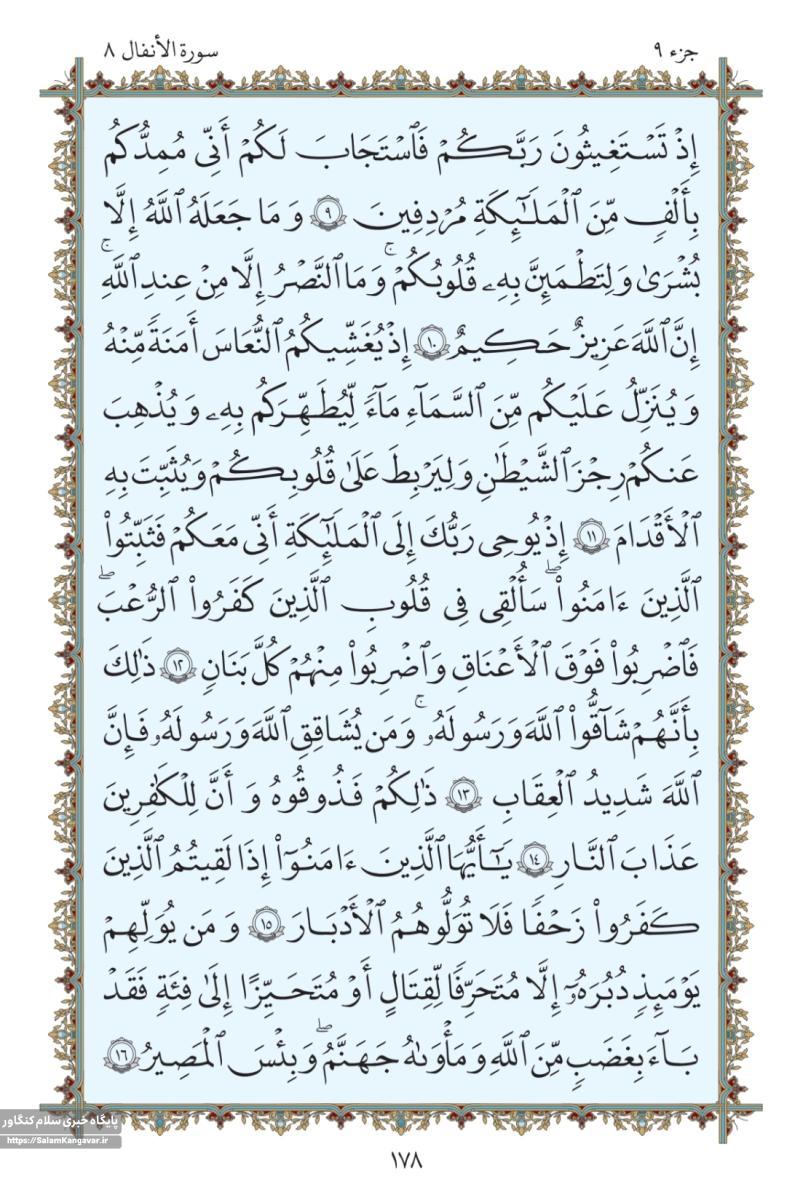 جزء ٩
سورة الأنفال ٨
إِذْ تَسْتَغِيثُونَ رَبَّكُمْ فَٱسْتَجَابَ لَكُمْ أَنِّى مُمِدُّكُم
بِأَلْفٍ مِّنَ ٱلْمَلَـٰٓئِكَةِ مُرْدِفِينَ ٩ وَمَا جَعَلَهُ ٱللَّهُ إِلَّا
بُشْرَىٰ وَلِتَطْمَئِنَّ بِهِۦ قُلُوبُكُمْ ۚ وَمَا ٱلنَّصْرُ إِلَّا مِنْ عِندِ ٱللَّهِ ۚ
إِنَّ ٱللَّهَ عَزِيزٌ حَكِيمٌ ١٠ إِذْ يُغَشِّيكُمُ ٱلنُّعَاسَ أَمَنَةً مِّنْهُ
وَيُنَزِّلُ عَلَيْكُم مِّنَ ٱلسَّمَآءِ مَآءً لِّيُطَهِّرَكُم بِهِۦ وَيُذْهِبَ
عَنكُمْ رِجْزَ ٱلشَّيْطَـٰنِ وَلِيَرْبِطَ عَلَىٰ قُلُوبِكُمْ وَيُثَبِّتَ بِهِ
ٱلْأَقْدَامَ ١١ إِذْ يُوحِى رَبُّكَ إِلَى ٱلْمَلَـٰٓئِكَةِ أَنِّى مَعَكُمْ فَثَبِّتُوا۟
ٱلَّذِينَ ءَامَنُوا۟ ۖ سَأُلْقِى فِى قُلُوبِ ٱلَّذِينَ كَفَرُوا۟ ٱلرُّعْبَ ۖ
فَٱضْرِبُوا۟ فَوْقَ ٱلْأَعْنَاقِ وَٱضْرِبُوا۟ مِنْهُمْ كُلَّ بَنَانٍ ١٢ ذَٰلِكَ
بِأَنَّهُمْ شَآقُّوا۟ ٱللَّهَ وَرَسُولَهُۥ ۚ وَمَن يُشَاقِقِ ٱللَّهَ وَرَسُولَهُۥ فَإِنَّ
ٱللَّهَ شَدِيدُ ٱلْعِقَابِ ١٣ ذَٰلِكُمْ فَذُوقُوهُ وَأَنَّ لِلْكَـٰفِرِينَ
عَذَابَ ٱلنَّارِ ١٤ يَـٰٓأَيُّهَا ٱلَّذِينَ ءَامَنُوٓا۟ إِذَا لَقِيتُمُ ٱلَّذِينَ
كَفَرُوا۟ زَحْفًا فَلَا تُوَلُّوهُمُ ٱلْأَدْبَارَ ١٥ وَمَن يُوَلِّهِمْ
يَوْمَئِذٍ دُبُرَهُۥٓ إِلَّا مُتَحَرِّفًا لِّقِتَالٍ أَوْ مُتَحَيِّزًا إِلَىٰ فِئَةٍ فَقَدْ
بَآءَ بِغَضَبٍ مِّنَ ٱللَّهِ وَمَأْوَىٰهُ جَهَنَّمُ ۖ وَبِئْسَ ٱلْمَصِيرُ ١٦
پایگاه خبری سلام کنگاور
https://SalamKangavar.ir
١٧٨